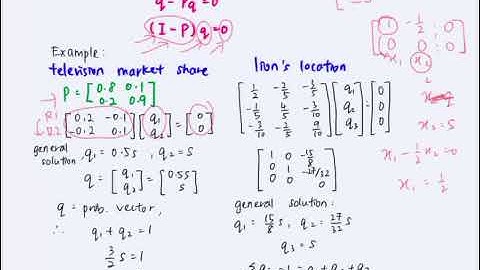 q - Pq = 0
(I-P)q = 0
Example:
television market share
P = [0.8 0.1
0.2 0.9]
R1 [0.2 -0.1
-0.2 0.1] [q1
q2] = [0
0]
general solution, q1 = 0.5s, q2 = s
q = [q1
q2] = [0.5s
s]
q = prob. vector,
∴ q1 + q2 = 1
3/2 s = 1
Lion's location
[1/2 -2/5 -3/5
-1/5 4/5 -3/10
-3/10 -2/5 9/10] [q1
q2
q3] = [0
0
0]
[1 0 -15/8
0 1 -27/32
0 0 0]
general solution:
q1 = 15/8 s, q2 = 27/32 s
q3 = s
[1 -1/2 : 0
0 0 : 0]
x1 x2
x2 = s
x1 - 1/2 x2 = 0
x1 = 1/2